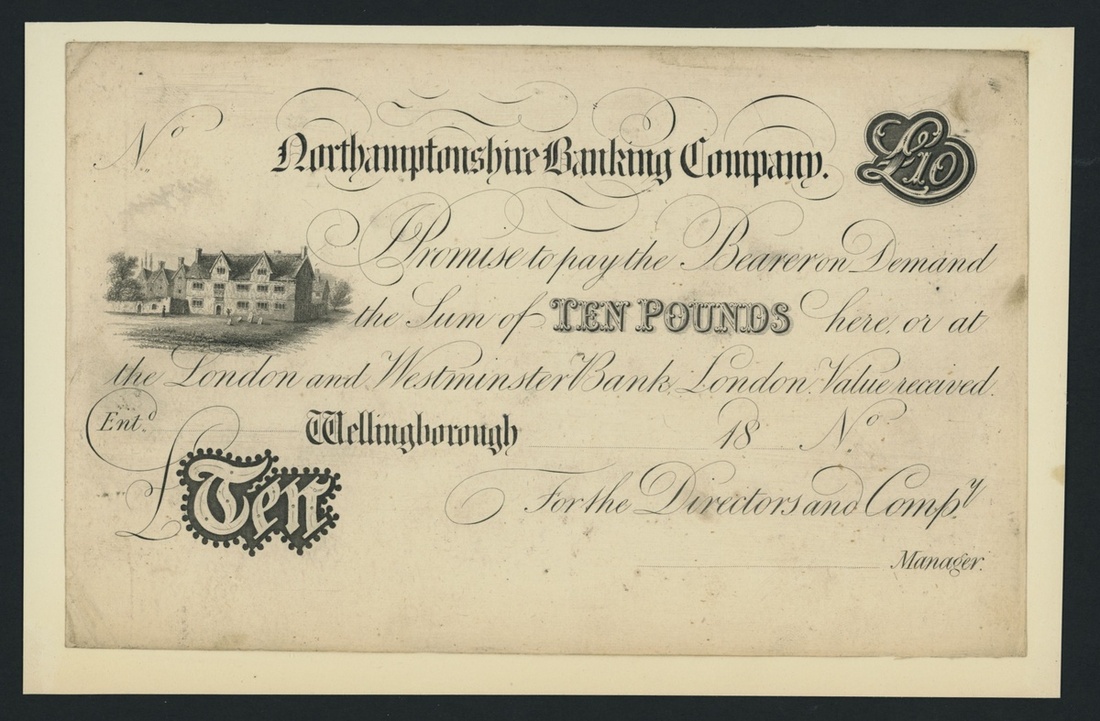 No
Northamptonshire Banking Company.
£10
I Promise to pay the Bearer on Demand
the Sum of TEN POUNDS here, or at
the London and Westminster Bank, London. Value received.
Ent.d Wellingborough 18 No
£ Ten
For the Directors and Comp.y
Manager.